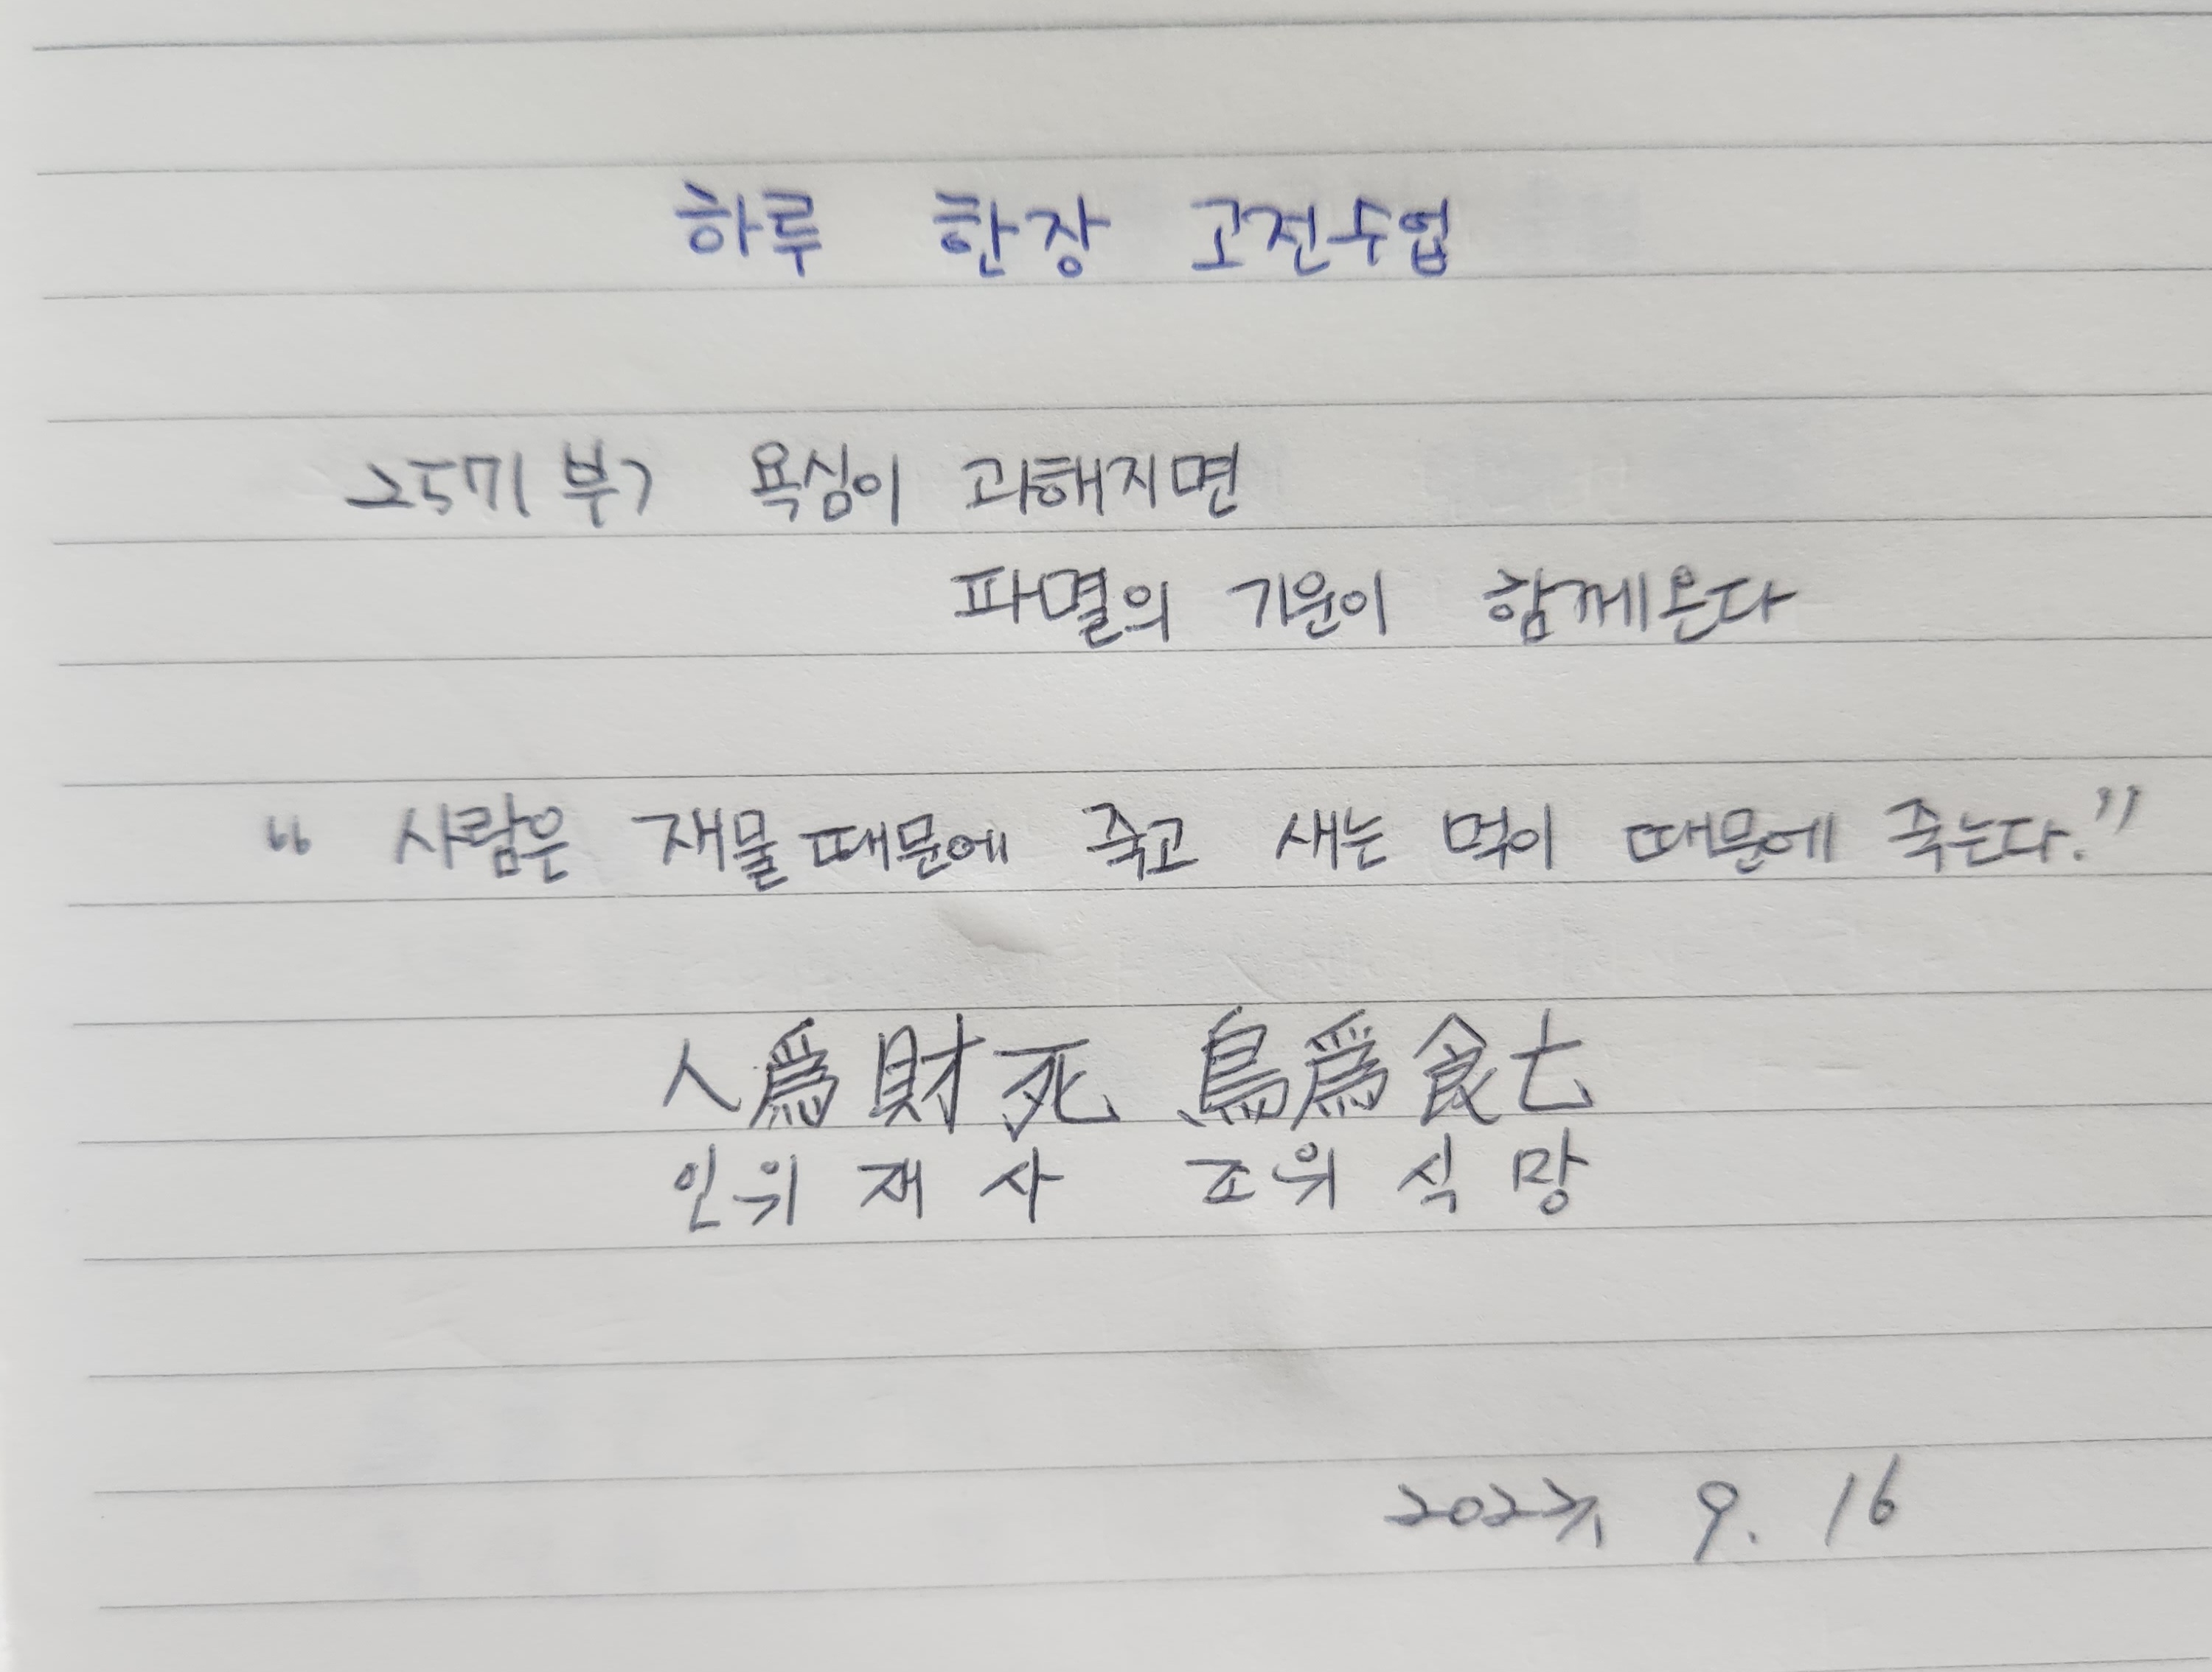 하루 한장 고전수업
욕심이 과해지면
파멸의 기운이 함께온다
"사람은 재물 때문에 죽고 새는 먹이 때문에 죽는다."
人爲財死 鳥爲食亡
인위재사 조위식망
9. 16